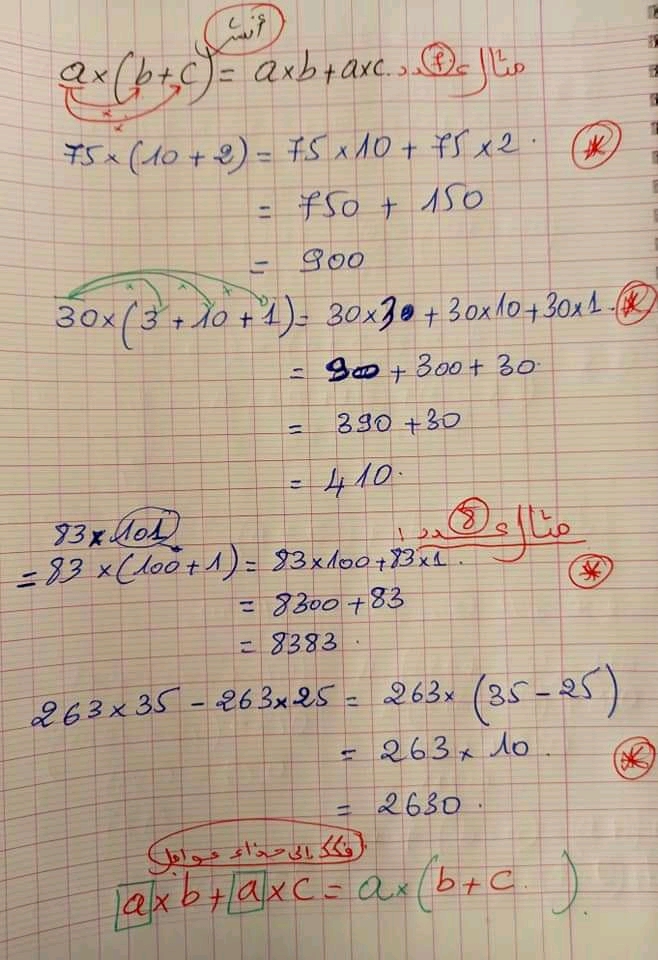 أنشر
a×(b+c) = a×b+a×c. مثال عدد 7:
75×(10+2) = 75×10 + 75×2.
= 750 + 150
= 900
30×(3+10+1) = 30×3 + 30×10 + 30×1.
= 90 + 300 + 30.
= 390 + 30
= 410.
مثال عدد 8:
83×101
= 83×(100+1) = 83×100+83×1.
= 8300+83
= 8383.
263×35 - 263×25 = 263×(35-25)
= 263×10.
= 2630.
فكك إلى جذاء عوامل
a×b+a×c = a×(b+c).